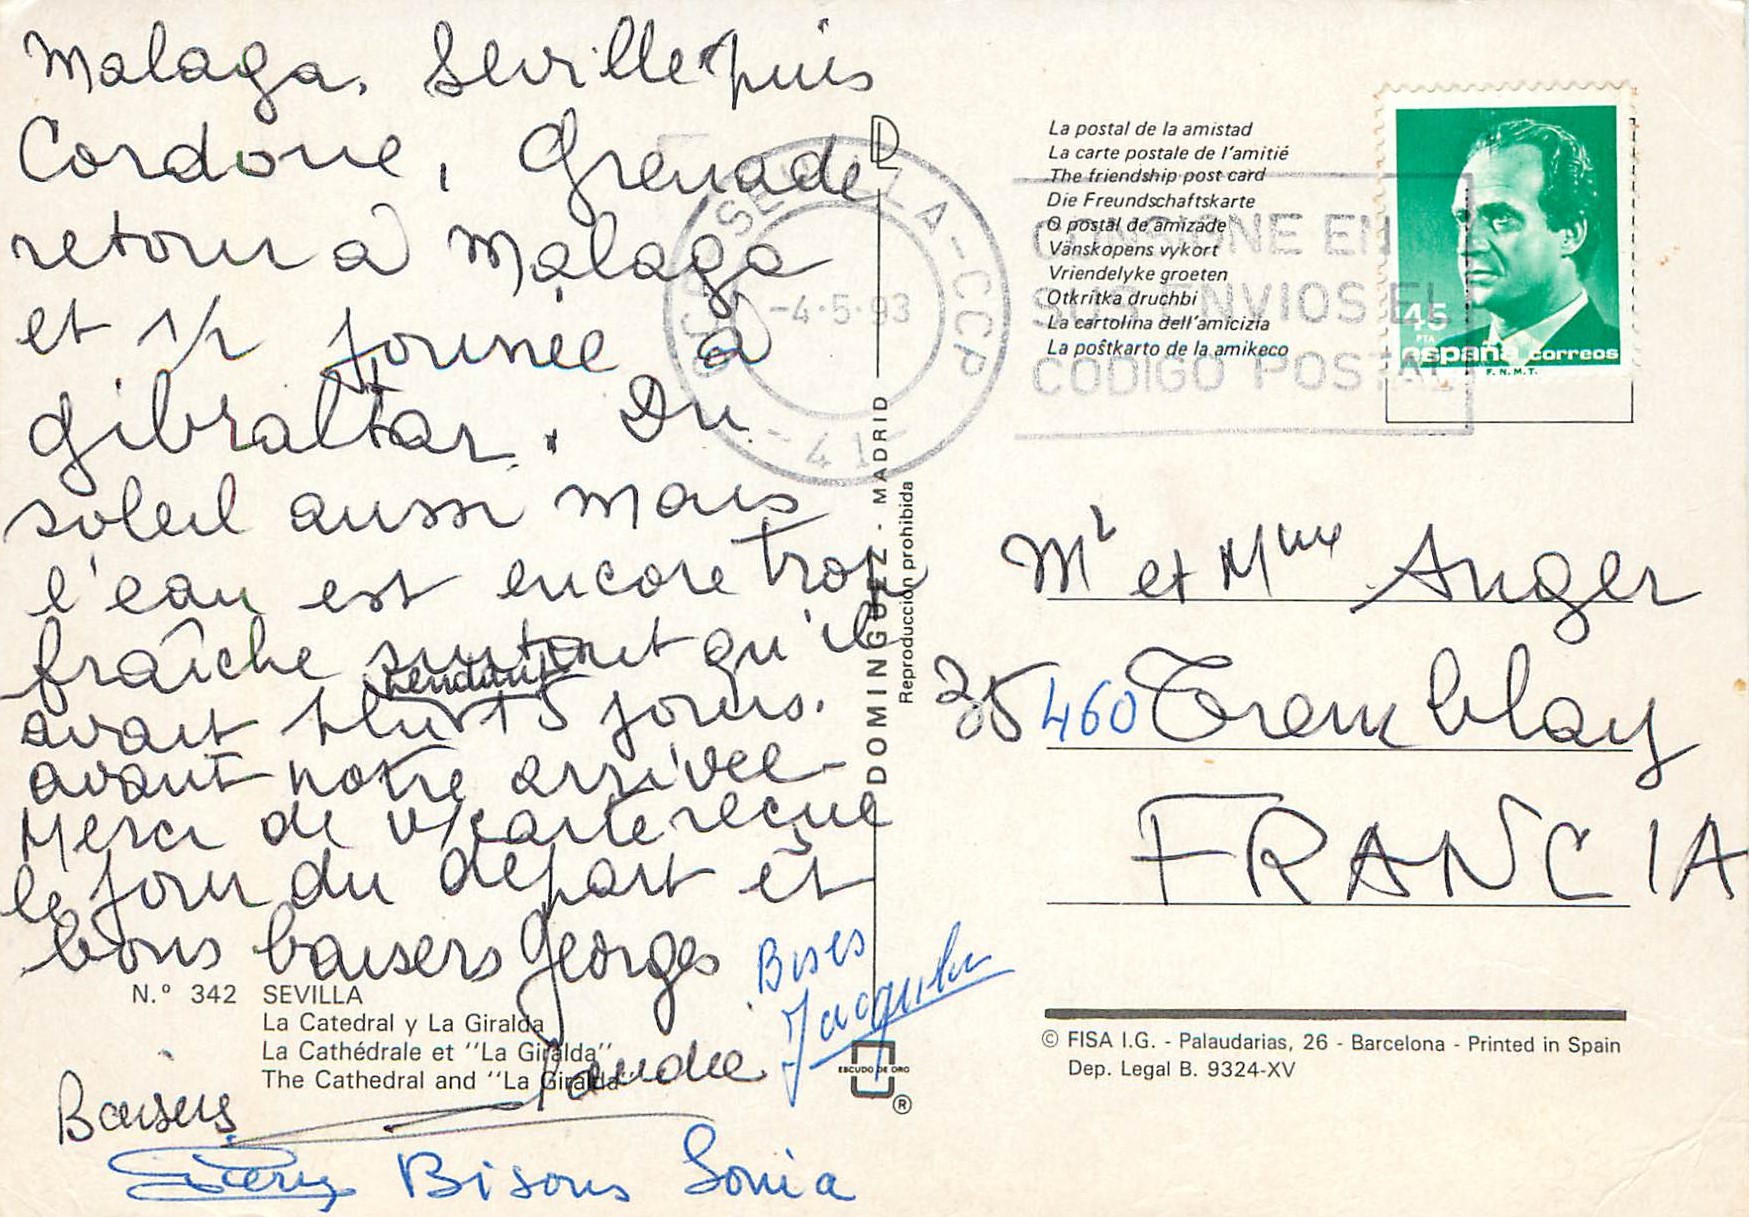 Malaga. Seville puis
Cordoue, Grenade
retour à Malaga
et 1/2 journée à
Gibraltar. Du
soleil aussi mais
l'eau est encore trop
fraîche surtout qu'il
pendant
avait plu 15 jours.
avant notre arrivée
Merci de v/carte reçue
le jour du départ et
bons baisers Georges
Bises
Jacqueline
Baisers
Bisous Sonia
N.º 342 SEVILLA
La Catedral y La Giralda
La Cathédrale et ''La Giralda''
The Cathedral and ''La Giralda''
DOMINGUEZ - MADRID
Reproducción prohibida
ESCUDO DE ORO
®
La postal de la amistad
La carte postale de l'amitié
The friendship post card
Die Freundschaftskarte
O postal de amizade
Vänskopens vykort
Vriendelyke groeten
Otkritka druchbi
La cartolina dell'amicizia
La poŝtkarto de la amikeco
SEVILLA-CCP
-4·5·93
-41-
CONSIGNE EN
SUS ENVIOS EL
CODIGO POSTAL
45
PTA
españa correos
F.N.M.T.
Mr et Mme Anger
35460 Tremblay
FRANCIA
© FISA I.G. - Palaudarias, 26 - Barcelona - Printed in Spain
Dep. Legal B. 9324-XV